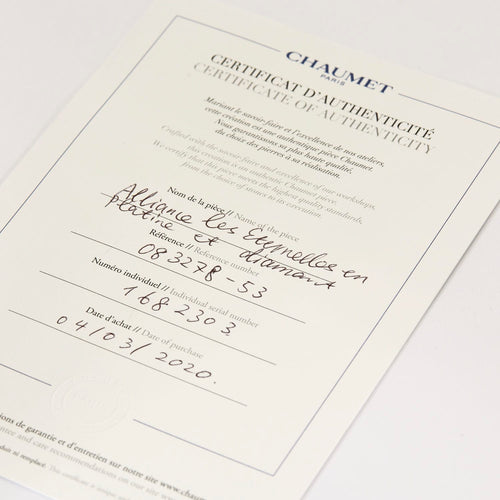 CHAUMET
PARIS
CERTIFICAT D'AUTHENTICITÉ
CERTIFICATE OF AUTHENTICITY
Mariant le savoir-faire et l'excellence de nos ateliers,
cette création est une authentique pièce Chaumet.
Nous garantissons sa plus haute qualité,
du choix des pierres à sa réalisation.
Crafted with the savoir-faire and excellence of our workshops,
this creation is an authentic Chaumet piece.
We certify that the piece meets the highest quality standards,
from the choice of stones to its creation.
Nom de la pièce // Name of the piece
Alliance les Eternelles en
platine et diamant
Référence // Reference number
083278-53
Numéro individuel // Individual serial number
1682303
Date d'achat // Date of purchase
04/03/2020.
tions de garantie et d'entretien sur notre site www.chaum
antee and care recommendations on our site www
duit ni remplacé. This certificate